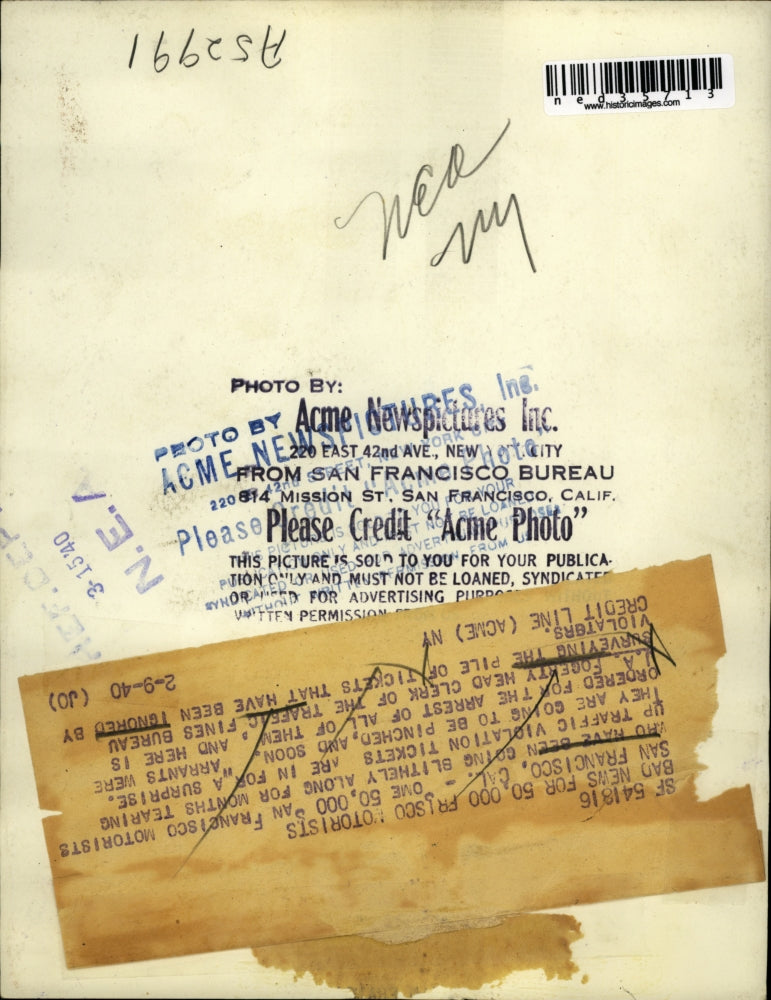 AS2991
ned35713
www.historicimages.com
nea
ny
PHOTO BY:
Acme Newspictures Inc.
220 EAST 42nd AVE., NEW YORK CITY
FROM SAN FRANCISCO BUREAU
814 MISSION ST. SAN FRANCISCO, CALIF.
Please Credit "Acme Photo"
THIS PICTURE IS SOLD TO YOU FOR YOUR PUBLICA-
TION ONLY AND MUST NOT BE LOANED, SYNDICATED
OR USED FOR ADVERTISING PURPO
WRITTEN PERMISSION
PHOTO BY
ACME NEWSPICTURES, Inc.
220 E. 42nd STREET, NEW YORK
Please Credit "Acme Photo"
N.E.A
3-15-40
REF. DEP
SF 541816
BAD NEWS FOR 50,000 FRISCO MOTORISTS
SAN FRANCISCO, CAL. -- SOME 50,000 SAN FRANCISCO MOTORISTS
WHO HAVE BEEN GOING BLITHELY ALONG FOR MONTHS TEARING
UP TRAFFIC VIOLATION TICKETS ARE IN FOR A SURPRISE.
THEY ARE GOING TO BE PINCHED, AND SOON. WARRANTS WERE
ORDERED FOR THE ARREST OF ALL OF THEM, AND HERE IS
J.A. FOGERTY HEAD CLERK OF THE TRAFFIC FINES BUREAU
SURVEYING THE PILE OF TICKETS THAT HAVE BEEN IGNORED BY
VIOLATORS.
CREDIT LINE (ACME) NY 2-9-40 (JO)